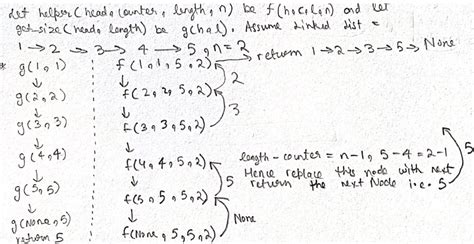 Let helper(head, counter, length, n) be f(h,c,l,n) and let
get-size(head, length) be g(h,l). Assume Linked List =
1→2 → 3 → 4 → 5, n = 2
* g(1,1) f(1,1,5,2) return 1→2→3→5→ None
↓ ↓ 2
g(2,2) f(2,2,5,2)
↓ ↓ 3
g(3,3) f(3,3,5,2)
↓ ↓
g(4,4) f(4,4,5,2) length - counter = n-1, 5-4=2-1
↓ ↓ 5 Hence replace this node with next
g(5,5) f(5,5,5,2) return the next Node i.e. 5 5
↓ ↓ None
g(None,5) f(None,5,5,2)
return 5